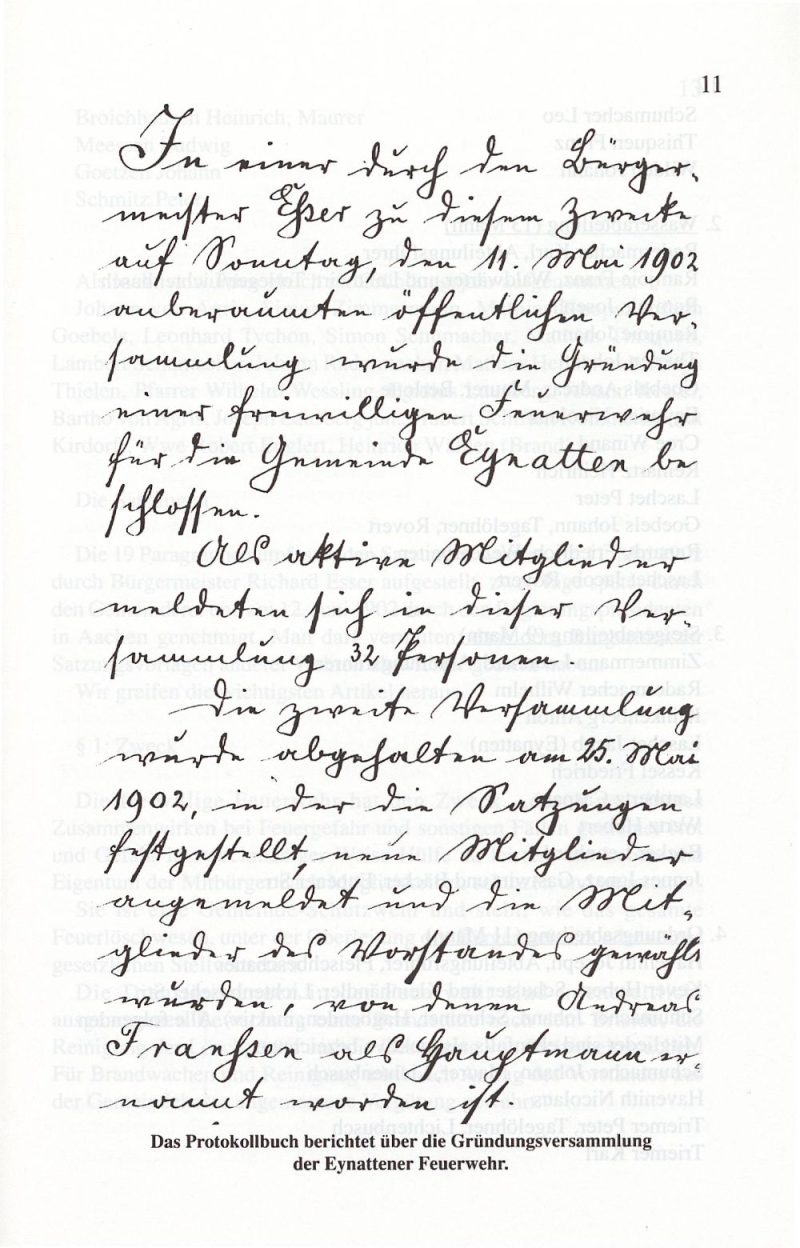 11
In einer durch den Bürger-
meister Eßer zu diesem Zwecke
auf Sonntag, den 11 Mai 1902
anberaumten öffentlichen Ver-
sammlung wurde die Gründung
einer freiwilligen Feuerwehr
für die Gemeinde Eynatten be
schlossen.
Als aktive Mitglieder
meldeten sich in dieser Ver-
sammlung 32 Personen.
Die zweite Versammlung
wurde abgehalten am 25. Mai
1902, in der die Satzungen
festgestellt, neue Mitglieder
angemeldet und die Mit-
glieder des Vorstandes gewählt
wurden, von denen Andreas
Franßen als Hauptmann er-
nannt worden ist.
Das Protokollbuch berichtet über die Gründungsversammlung
der Eynattener Feuerwehr.